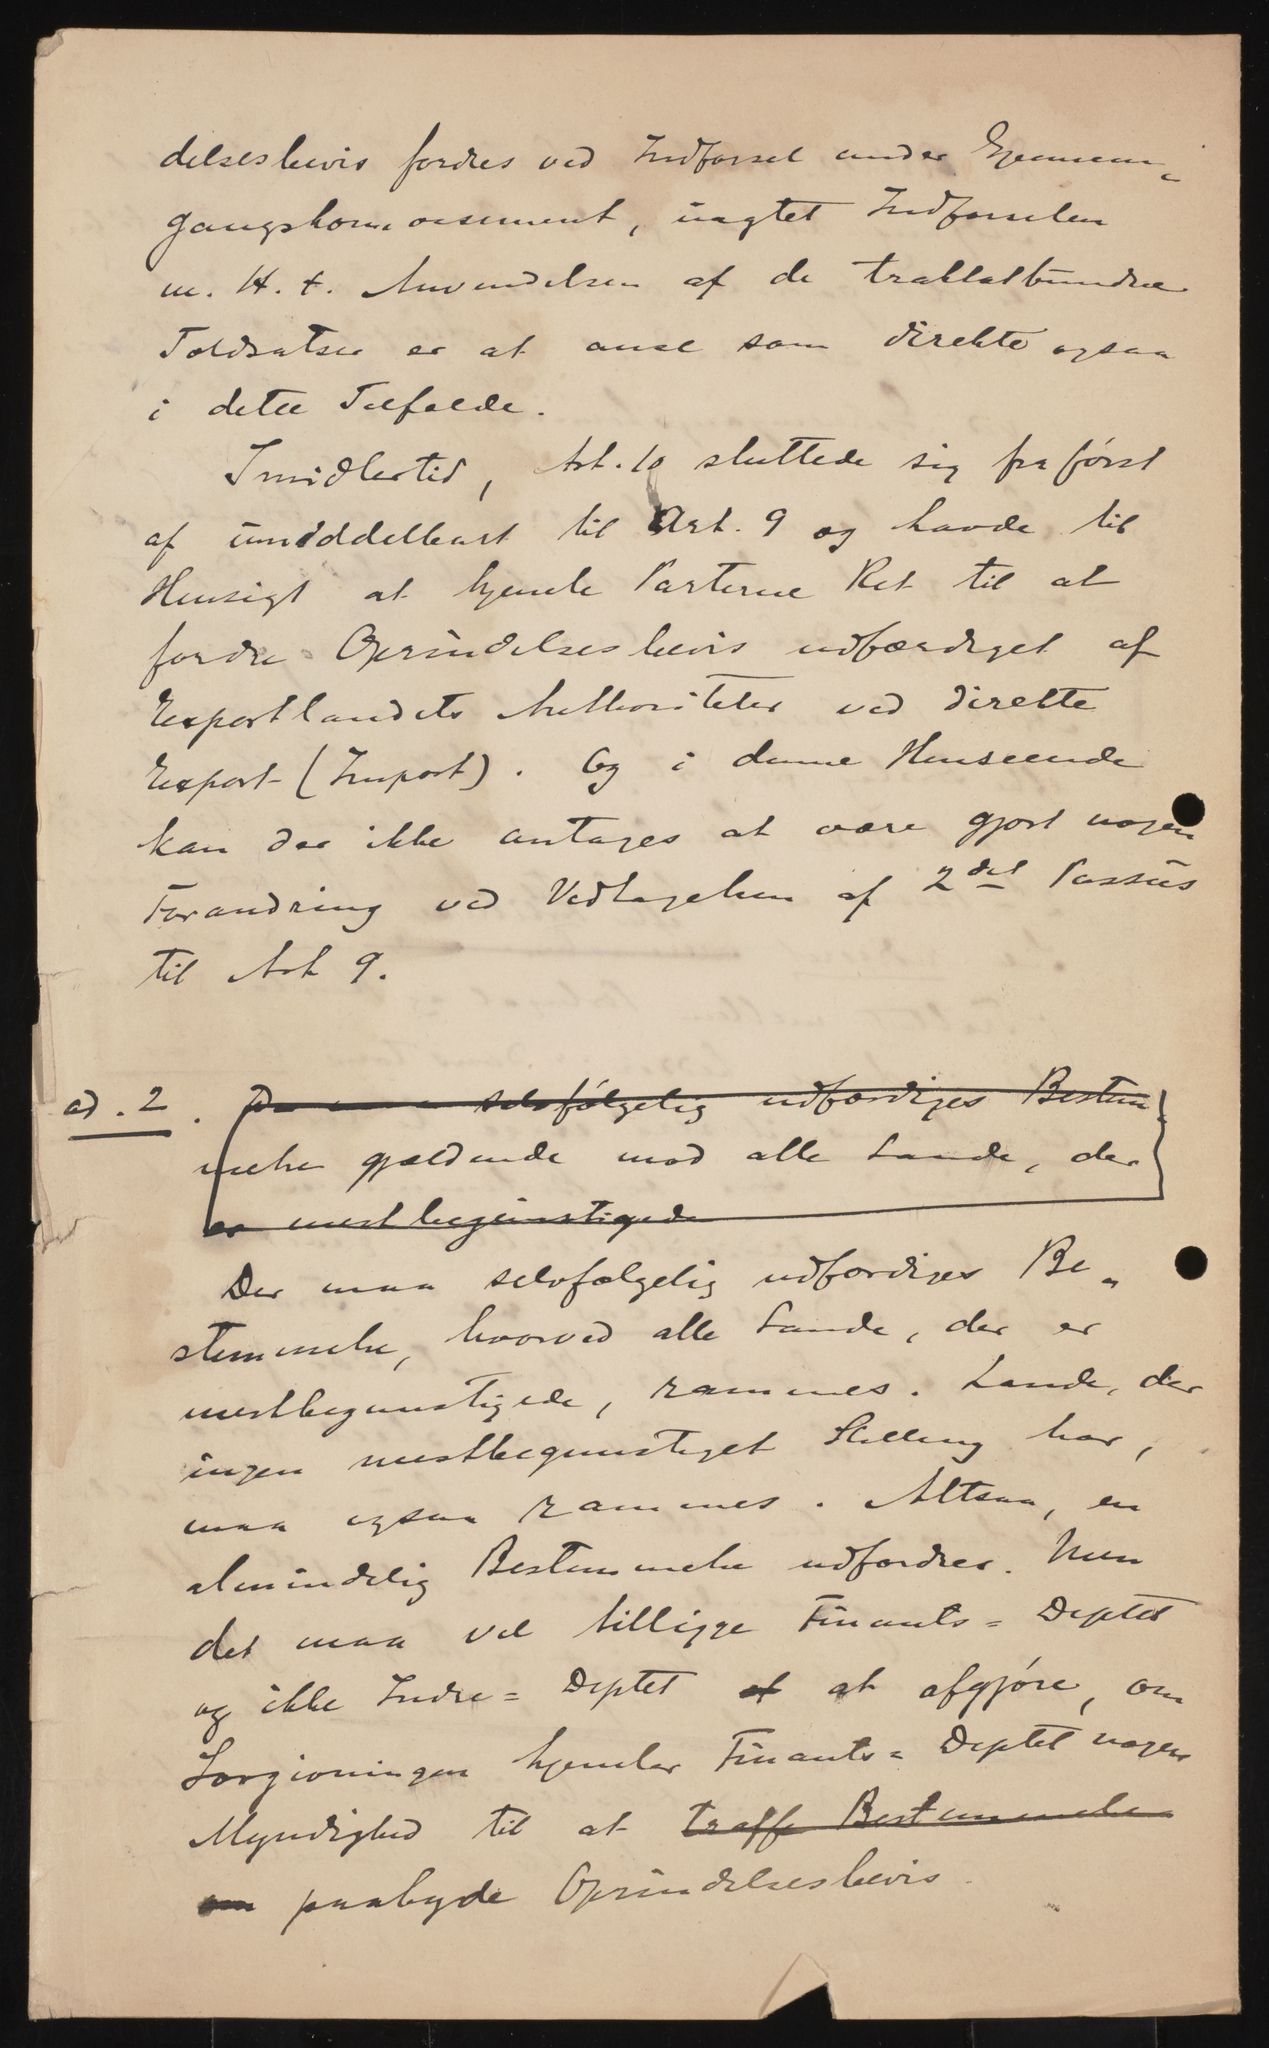 delsesbevis fordres ved Indførsel under Gjennem-
gangskonnossement, uagtet Indførselen
m. H. t. Anvendelsen af de traktatbundne
Toldsatser er at anse som direkte ogsaa
i dette Tilfælde.
Imidlertid, Art. 10 sluttede sig fra først
af umiddelbart til Art. 9 og havde til
Hensigt at hjemle Parterne Ret til at
fordre Oprindelsesbevis udfærdiget af
Exportlandets Authoriteter ved direkte
Export (Import). Og i denne Henseende
kan der ikke antages at være gjort nogen
Forandring ved Vedtagelsen af 2det Passus
til Art 9.
ad. 2. Der maa selvfølgelig udfærdiges Bestem-
melse gjældende mod alle Lande, der
er mestbegunstigede
Der maa selvfølgelig udfærdiges Be-
stemmelse, hvorved alle Lande, der er
mestbegunstigede, rammes. Lande, der
ingen mestbegunstiget Stilling har,
maa ogsaa rammes. Altsaa, en
almindelig Bestemmelse udfordres. Men
det maa vel tilligge Finants=Deptet
og ikke Indre=Deptet at at afgjøre, om
Lovgivningen hjemler Finants=Deptet nogen
Myndighed til at træffe Bestemmelse
om paabyde Oprindelsesbevis.